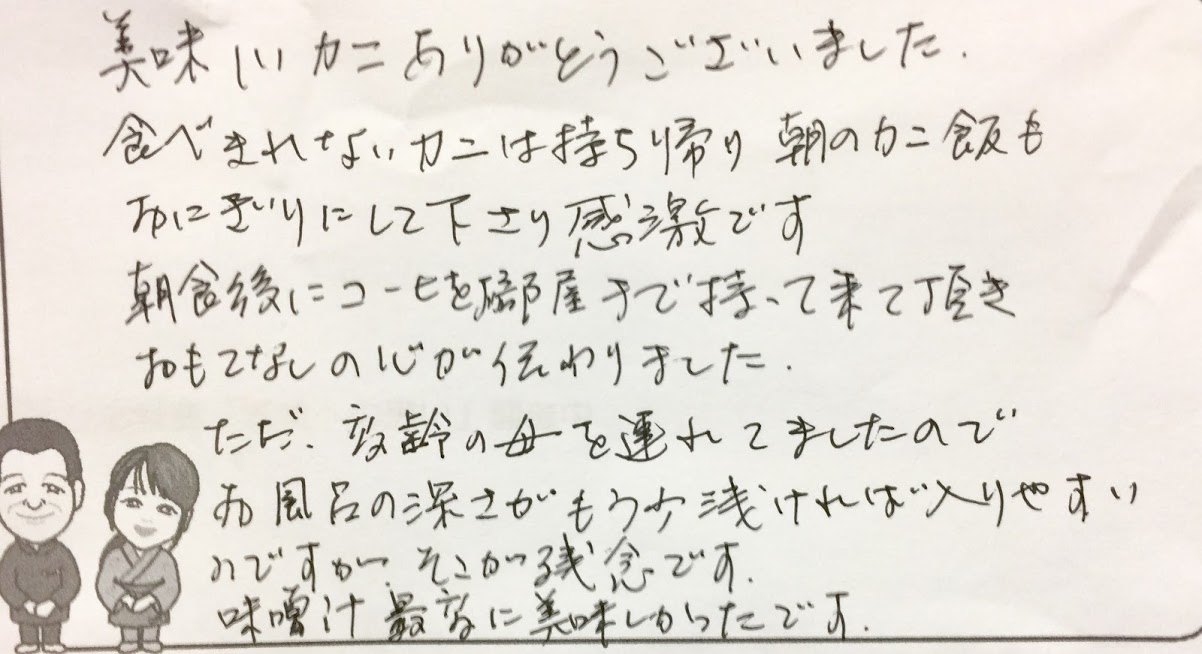 美味しいカニありがとうございました.
食べきれないカニは持ち帰り 朝のカニ飯も
おにぎりにして下さり感激です
朝食後にコーヒを部屋まで持って来て頂き
おもてなしの心が伝わりました.
ただ、高齢の母を連れてましたので
お風呂の深さがもう少浅ければ入りやすい
のですが、そこが残念です.
味噌汁最高に美味しかったです.